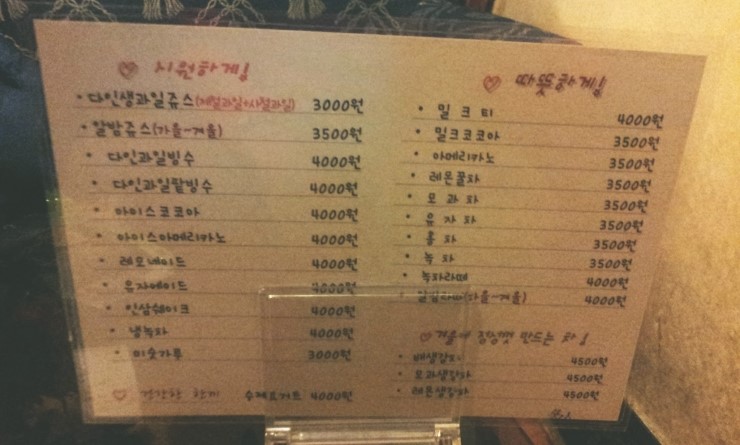 시원하게
다인생과일쥬스(제철과일+사철과일) 3000원
알밤쥬스(가을-겨울) 3500원
다인과일빙수 4000원
다인과일팥빙수 4000원
아이스코코아 4000원
아이스아메리카노 4000원
레모네이드 4000원
유자에이드 4000원
인삼쉐이크 4000원
냉녹차 4000원
미숫가루 3000원
건강한 한끼 수제요거트 4000원
따뜻하게
밀크티 4000원
밀크코코아 3500원
아메리카노 3500원
레몬꿀차 3500원
모과차 3500원
유자차 3500원
홍차 3500원
녹차 3500원
녹차라떼 4000원
알밤라떼(가을-겨울) 4000원
겨울에 정성껏 만드는 차
배생강차 4500원
모과생강차 4500원
레몬생강차 4500원